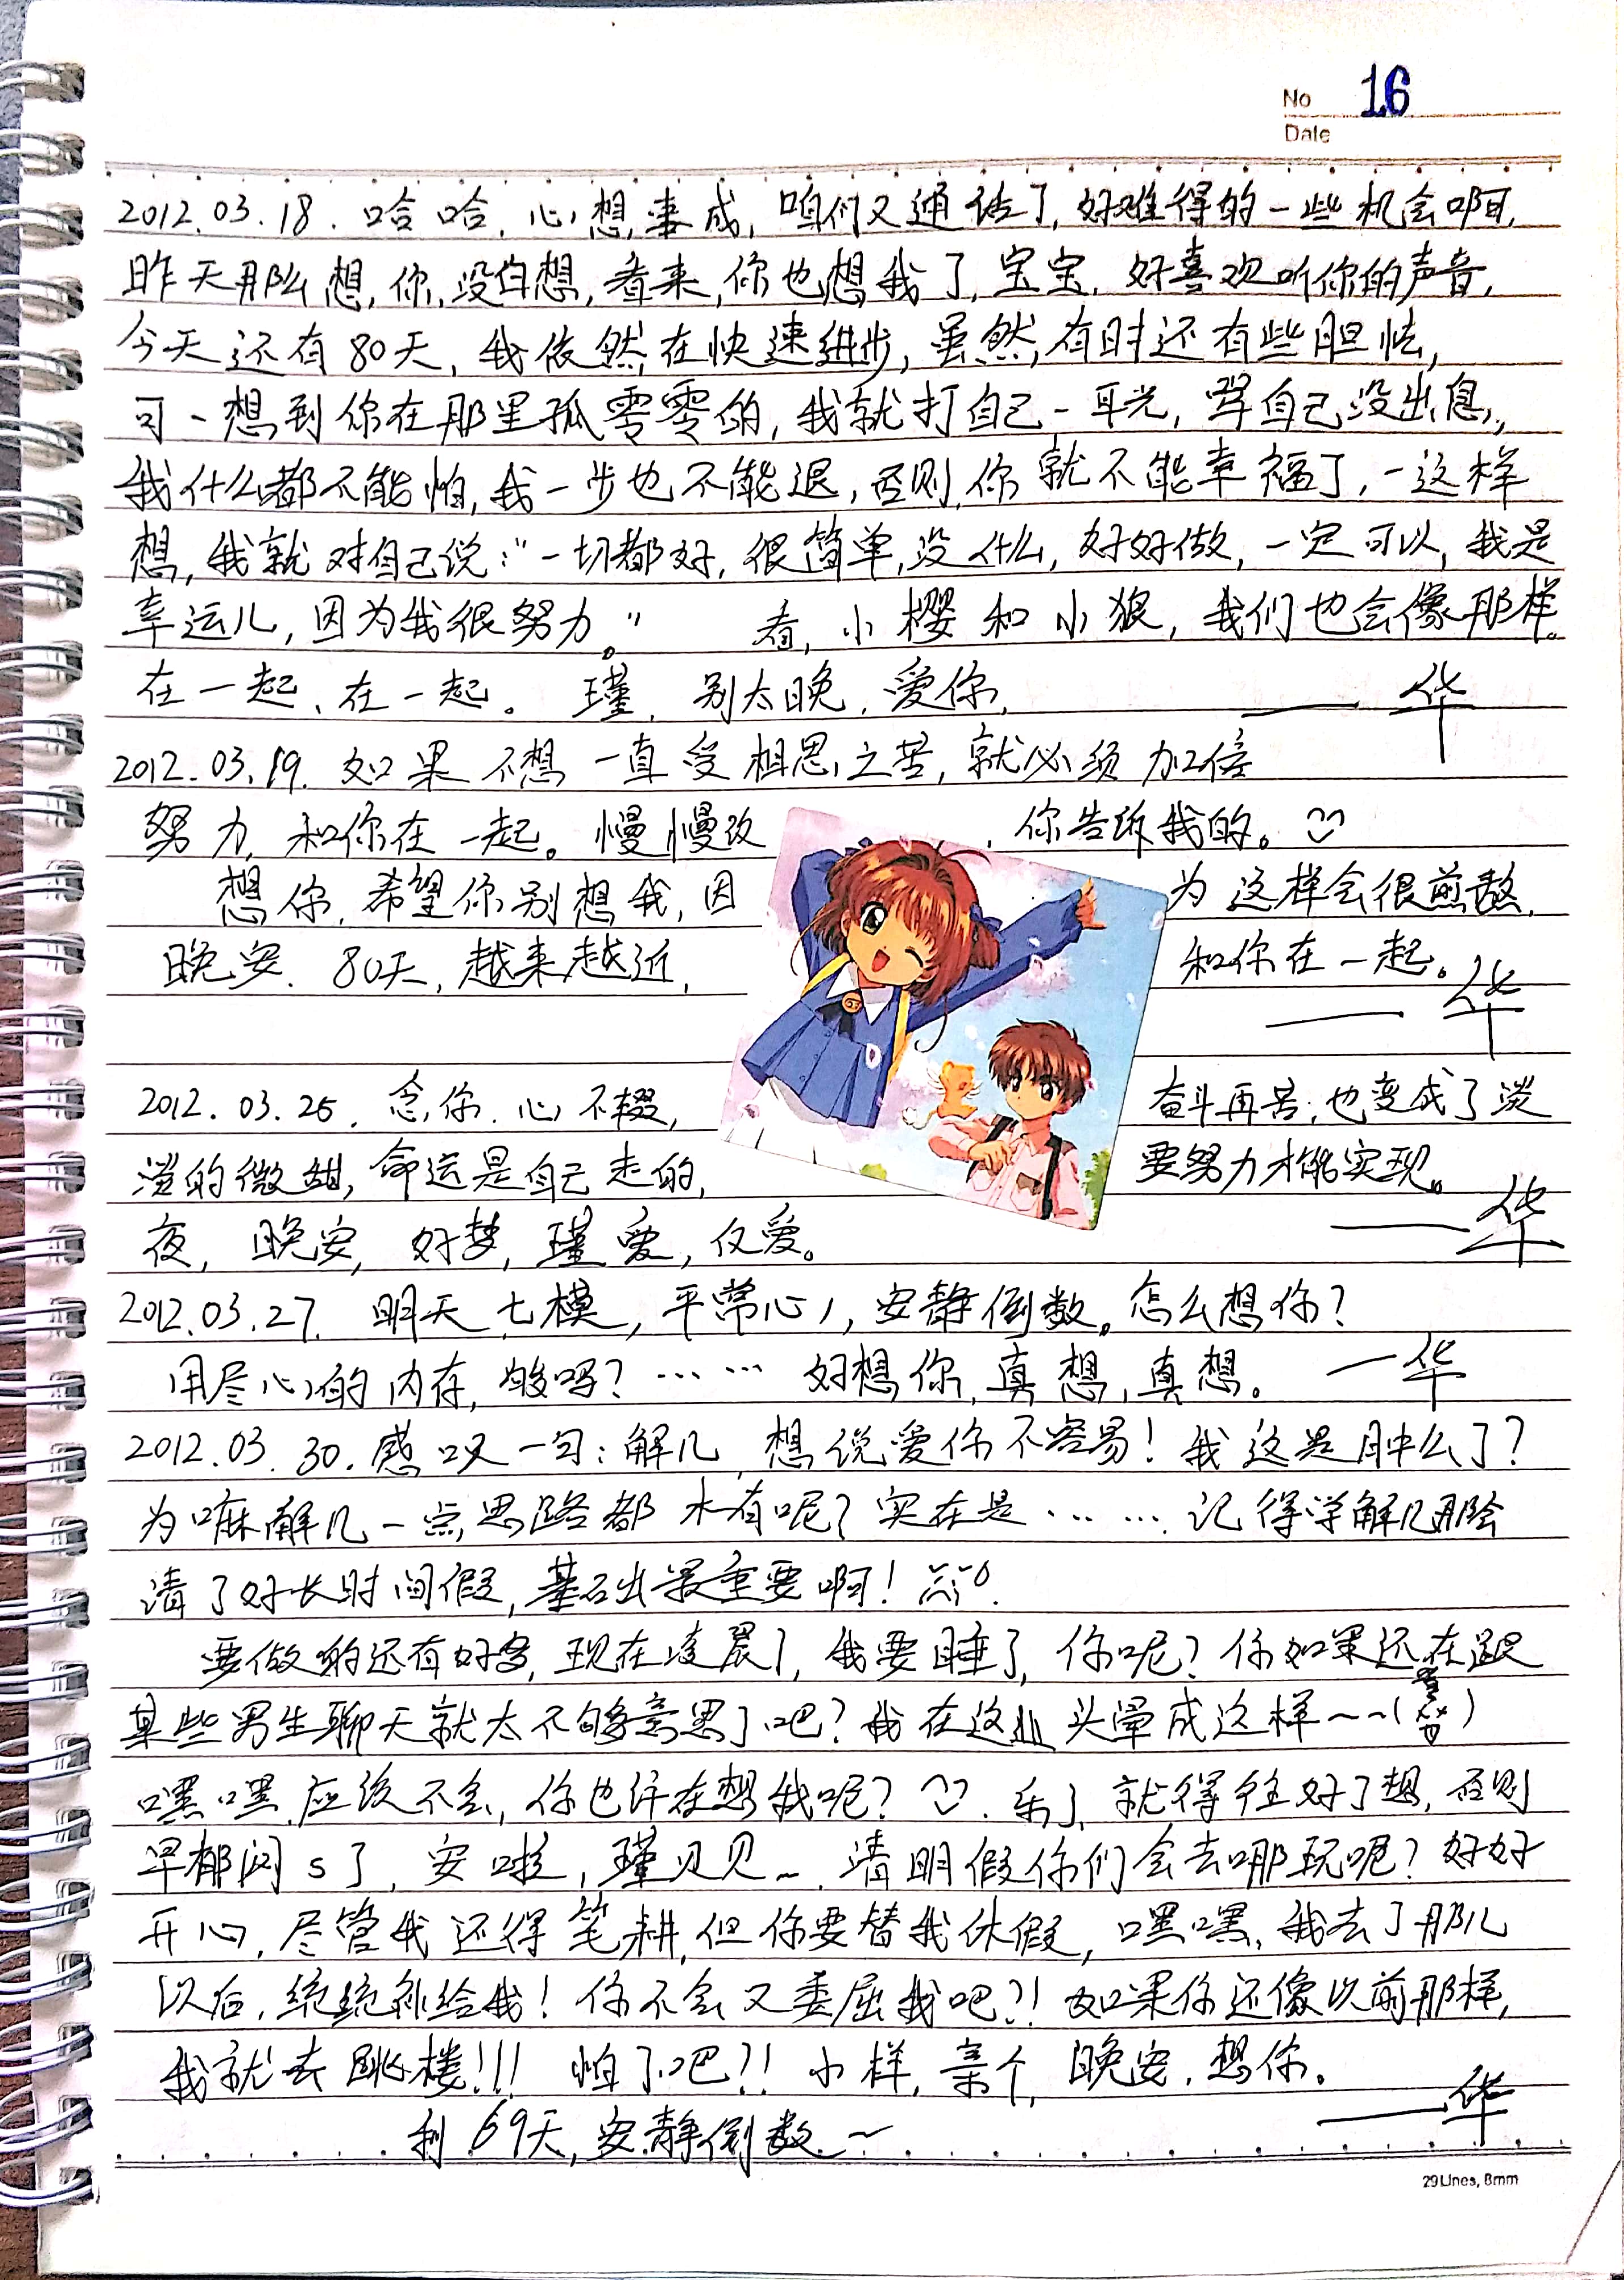 No 16
Date
2012.03.18. 哈哈,心想事成,咱们又通话了,好难得的一些机会啊,
昨天那么想,你,没白想,看来,你也想我了,宝宝,好喜欢听你的声音,
今天还有80天,我依然,在快速进步,虽然,有时还有些胆怯,
可一想到你在那里孤零零的,我就打自己一耳光,骂自己没出息,
我什么都不能怕,我一步也不能退,否则,你就不能幸福了,一这样
想,我就对自己说:"一切都好,很简单,没什么,好好做,一定可以,我是
幸运儿,因为我很努力。" 看,小樱和小狼,我们也会像那样。
在一起、在一起。 瑾,别太晚,爱你, ——华
2012.03.19. 如果不想一直受相思之苦,就必须加倍
努力,和你在一起。慢慢改,你告诉我的。
想你,希望你别想我,因为这样会很煎熬,
晚安. 80天,越来越近, 和你在一起。
——华
2012.03.25. 念你.心不辍, 奋斗再苦,也变成了淡
淡的微甜,命运是自己走的, 要努力才能实现。
夜,晚安,好梦,瑾爱,仅爱。 ——华
2012.03.27. 明天七模,平常心,安静倒数。怎么想你?
用尽心的内存,够吗?…… 好想你,真想,真想。 —华
2012.03.30.感叹一句:解几,想说爱你不容易!我这是肿么了?
为嘛解几一点思路都木有呢?实在是…….记得学解几那会
请了好长时间假,基础最重要啊!
要做的还有好多,现在凌晨了,我要睡了,你呢?你如果还在跟
某些男生聊天就太不够意思了吧?我在这儿头晕成这样~~( )
嘿嘿,应该不会,你也许在想我呢? .乐了,就得往好了想,否则
早郁闷s了,安啦,瑾贝贝~.清明假你们会去哪玩呢?好好
开心,尽管我还得笔耕,但你要替我休假,嘿嘿,我去了那儿
以后,统统补给我!你不会又委屈我吧?!如果你还像以前那样,
我就去跳楼!!! 怕了吧?!小样,亲个,晚安,想你。
——华
剩69天,安静倒数~
29Lines, 8mm